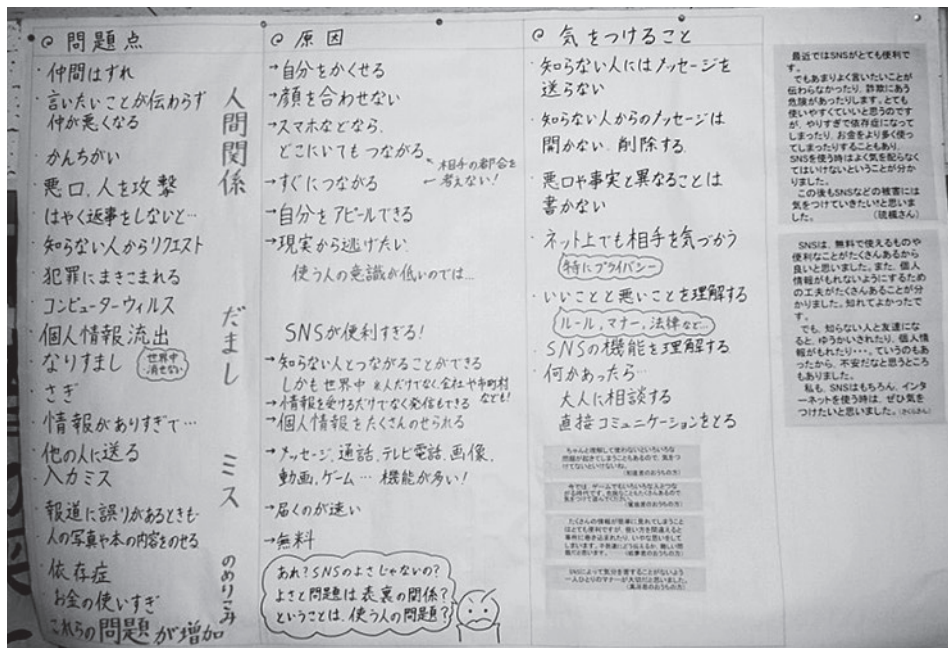 @ 問題点
・仲間はずれ
・言いたいことが伝わらず
仲が悪くなる
・かんちがい
・悪口、人を攻撃
・はやく返事をしないと…
・知らない人からリクエスト
・犯罪にまきこまれる
・コンピューターウィルス
・個人情報流出
・なりすまし
世界中
消せない
・さぎ
・情報がありすぎて…
・他の人に送る
・入力ミス
・報道に誤りがあるときも
・人の写真や本の内容をのせる
・依存症
お金の使いすぎ
これらの問題が増加
人間関係
だまし
ミス
のめりこみ
@ 原因
→自分をかくせる
→顔を合わせない
→スマホなどなら、
どこにいてもつながる
相手の都合を
考えない!
→すぐにつながる
→自分をアピールできる
→現実から逃げたい
使う人の意識が低いのでは…
SNSが便利すぎる!
→知らない人とつながることができる
しかも世界中 ※人だけでなく、会社や市町村
なども!
→情報を受けるだけでなく発信もできる
→個人情報をたくさんのせられる
→メッセージ、通話、テレビ電話、画像、
動画、ゲーム… 機能が多い!
→届くのが速い
→無料
あれ?SNSのよさじゃないの?
よさと問題は表裏の関係?
ということは、使う人の問題?
@ 気をつけること
・知らない人にはメッセージを
送らない
・知らない人からのメッセージは
開かない、削除する
・悪口や事実と異なることは
書かない
・ネット上でも相手を気づかう
特にプライバシー
・いいことと悪いことを理解する
ルール、マナー、法律など…
・SNSの機能を理解する
・何かあったら…
大人に相談する
直接コミュニケーションをとる
ちゃんと理解して使わないといろいろな
問題が起きてしまうこともあるので、気をつ
けてないといけないね。
今では、ゲームでもいろいろな人とつな
がる時代です。危険なこともたくさんあるので
気をつけて遊んでください。
たくさんの情報が簡単に見れてしまうこと
はとても便利ですが、使い方を間違えると
事件に巻き込まれたり、いやな思いをして
しまいます。
SNSによって気分を害することがないよう
一人ひとりのマナーが大切だと思いました。
最近ではSNSがとても便利で
す。
でもあまりよく言いたいことが
伝わらなかったり、詐欺にあう
危険があったりします。とても
使いやすくていいと思うのです
が、やりすぎて依存症になって
しまったり、お金をより多く使っ
てしまったりすることもあり、
SNSを使う時はよく気を配らなく
てはいけないということが分か
りました。
この後もSNSなどの被害には
気をつけていきたい!と思いま
した。 (琉楓さん)
SNSは、無料で使えるものや
便利なことがたくさんあるから
良いと思いました。また、個人
情報がもれないようにするため
の工夫がたくさんあることが分
かりました。知れてよかったで
す。
でも、知らない人と友達にな
ると、ゆうかいされたり、個人情
報がもれたり・・・。ていうのもあ
ったから、不安だなと思うところ
もありました。
私も、SNSはもちろん、インタ
ーネットを使う時は、ぜひ気を
つけたいと思いました。(さくらさん)